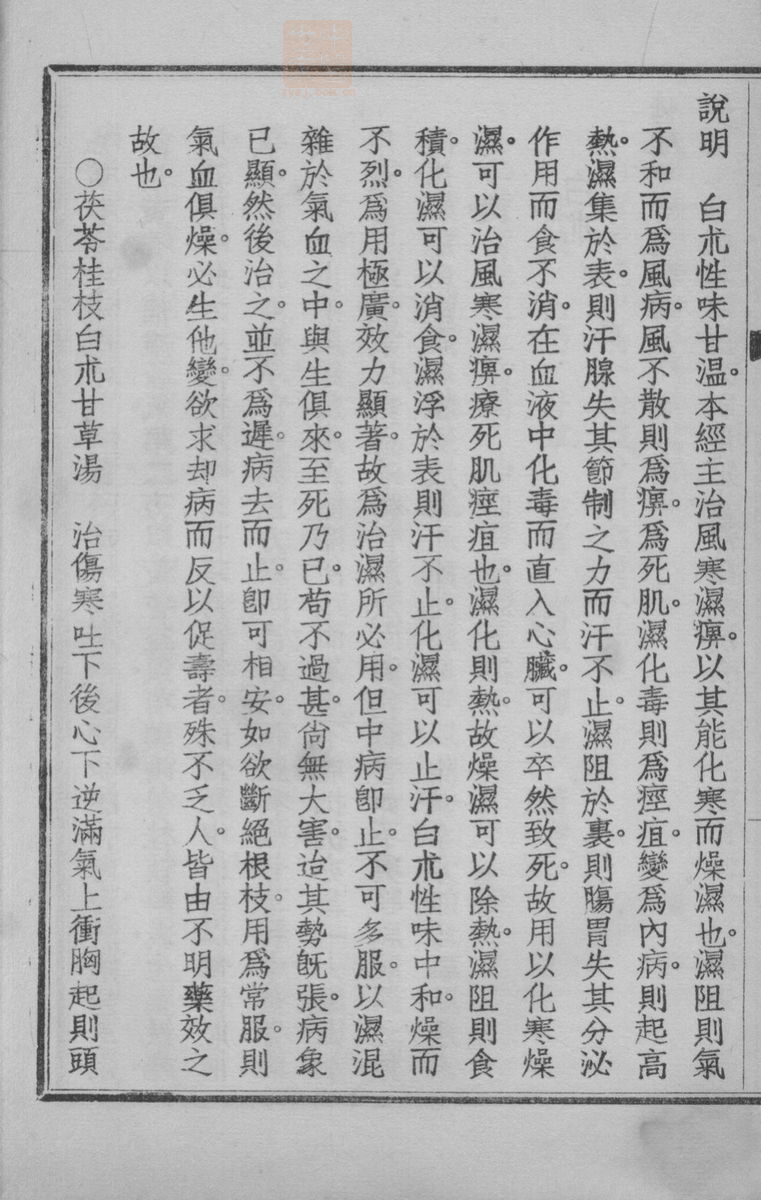 說明　白朮性味甘溫。本經主治風寒濕痹。以其能化寒而燥濕也。濕阻則氣
不和而爲風病。風不散則爲痹。爲死肌。濕化毒則爲痙疽。變爲內病。則起高
熱。濕集於表。則汗腺失其節制之力而汗不止。濕阻於裏。則腸胃失其分泌
作用而食不消。在血液中化毒而直入心臟。可以卒然致死。故用以化寒燥
濕。可以治風寒濕痹。療死肌痙疽也。濕化則熱。故燥濕可以除熱。濕阻則食
積。化濕可以消食。濕浮於表則汗不止。化濕可以止汗。白朮性味中和。燥而
不烈。爲用極廣。效力顯著。故爲治濕所必用。但中病卽止。不可多服。以濕混
雜於氣血之中。與生俱來。至死乃已。苟不過甚。尙無大害。迨其勢旣張。病象
已顯。然後治之。並不爲遲。病去而止。卽可相安。如欲斷絕根枝。用爲常服。則
氣血俱燥。必生他變。欲求却病而反以促壽者。殊不乏人。皆由不明藥效之
故也。
○茯苓桂枝白朮甘草湯　治傷寒吐下後心下逆滿氣上衝胸起則頭